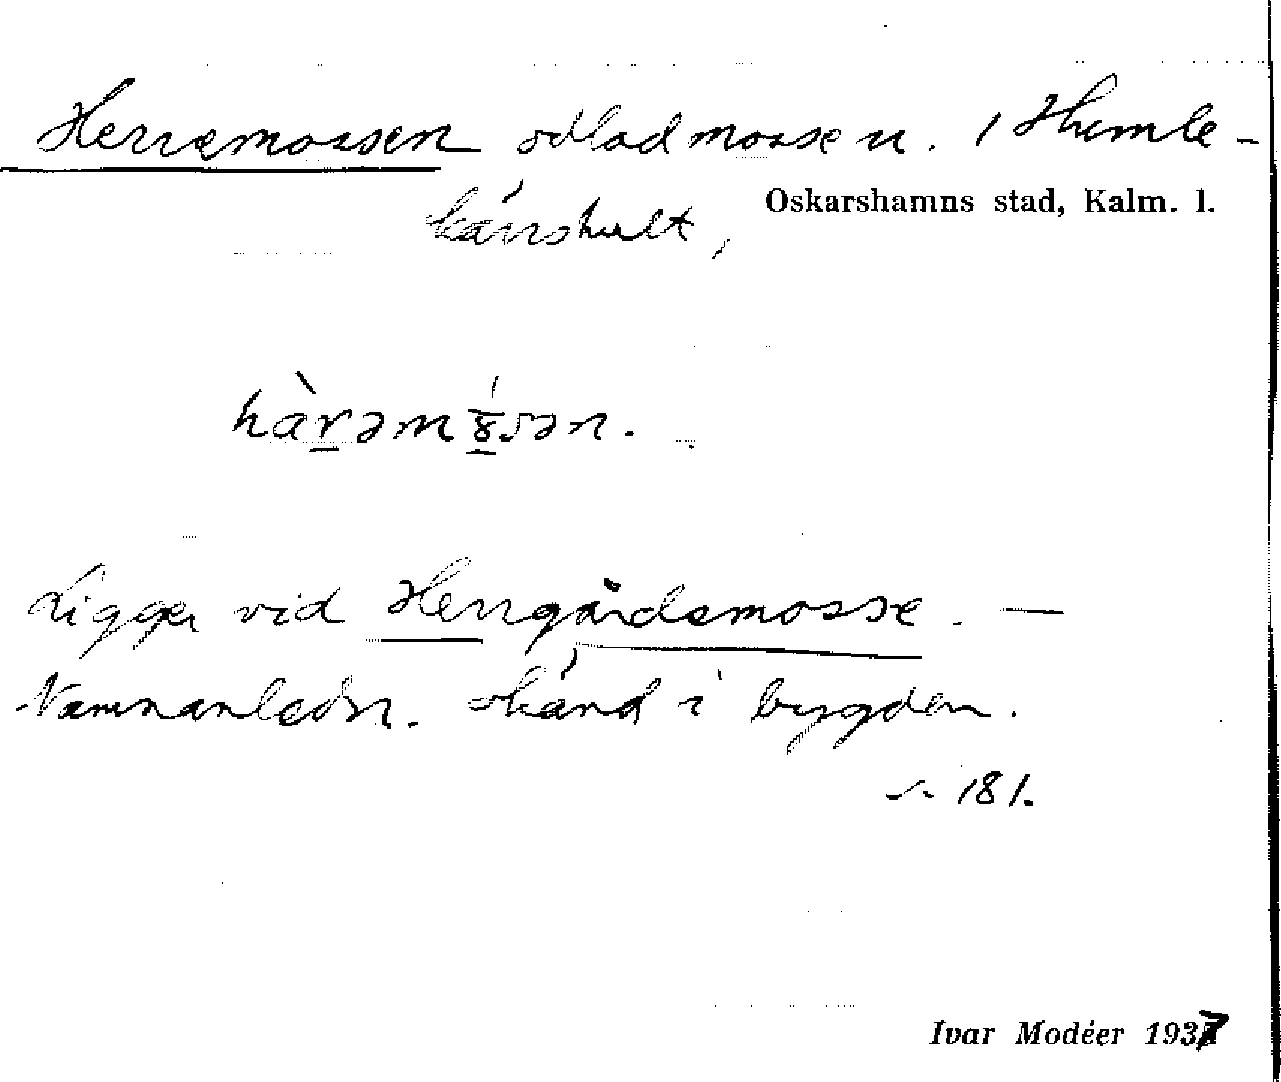 Herremossen odlad mosse n. i Humle-
kärrshult,
Oskarshamns stad, Kalm. l.
hàrəm
Ligger vid Herrgårdsmosse. —
Namnanledn. okänd i bygden.
s. 181.
Ivar Modéer 1937